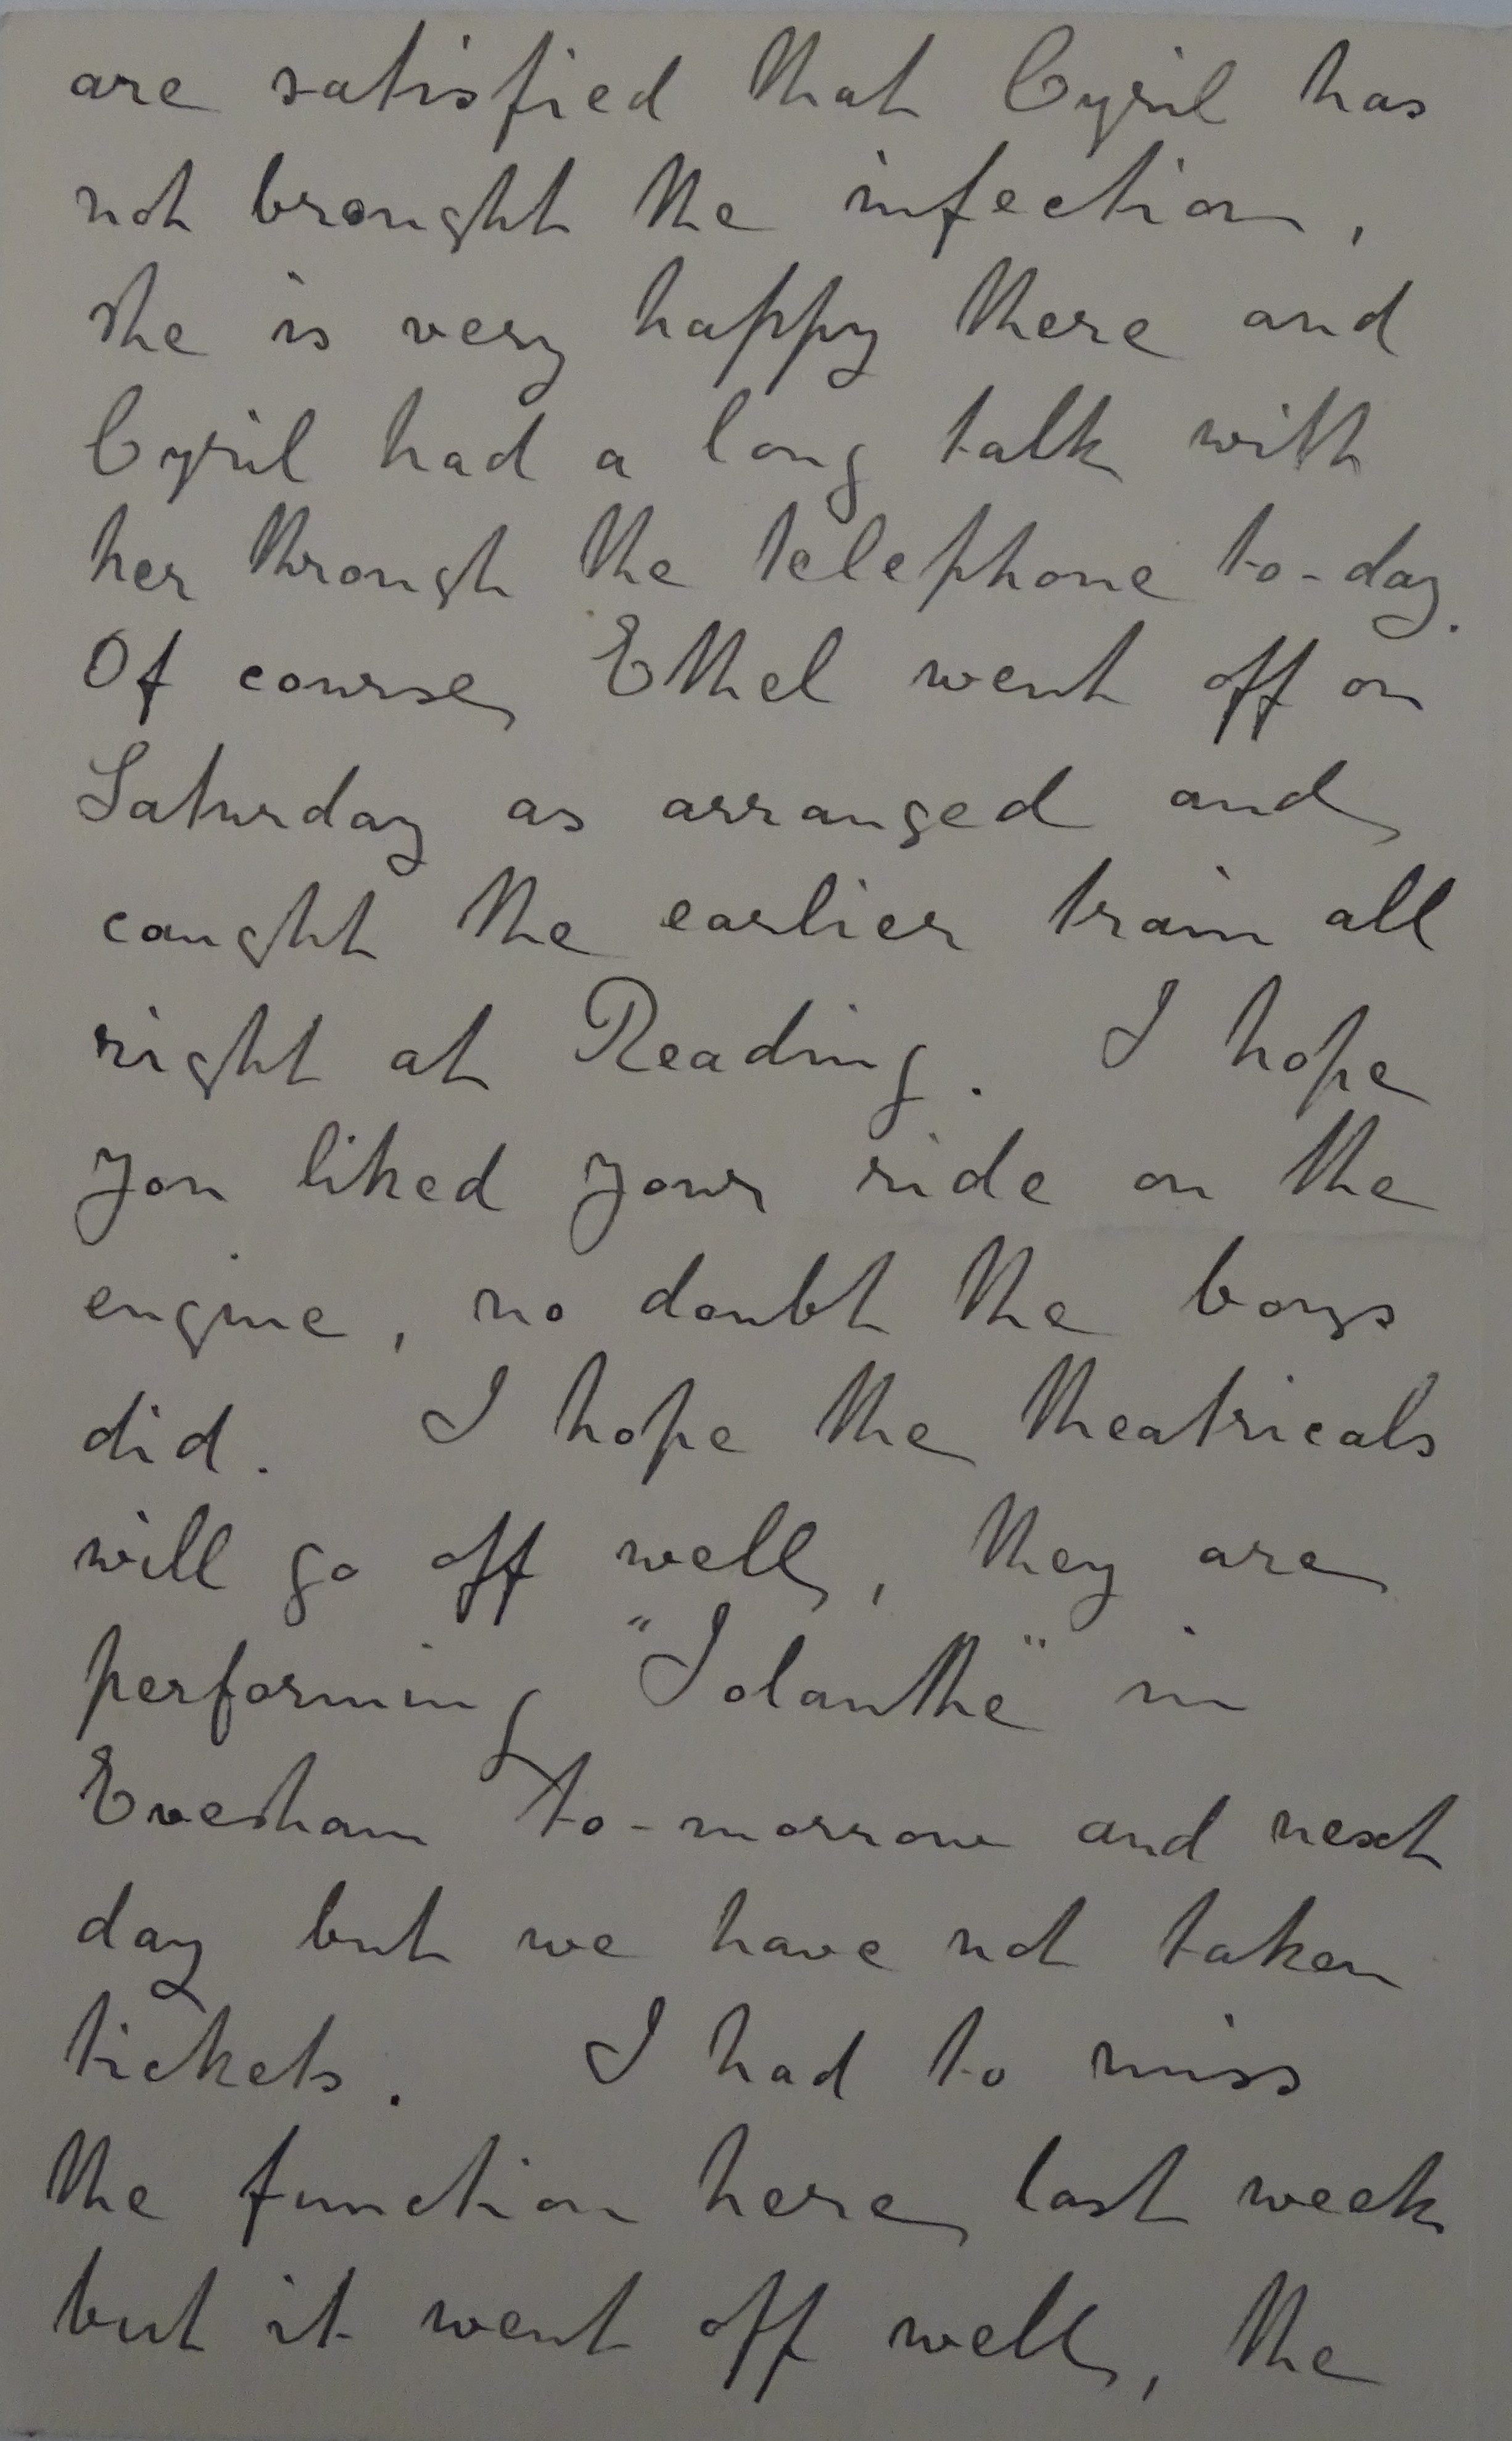 are satisfied that Cyril has
not brought the infection,
she is very happy there and
Cyril had a long talk with
her through the telephone to-day.
Of course Ethel went off on
Saturday as arranged and
caught the earlier train all
right at Reading. I hope
you liked your ride on the
engine, no doubt the boys
did. I hope the theatricals
will go off well, they are
performing "Iolanthe" in
Evesham to-morrow and next
day but we have not taken
tickets. I had to miss
the function here last week
but it went off well, the